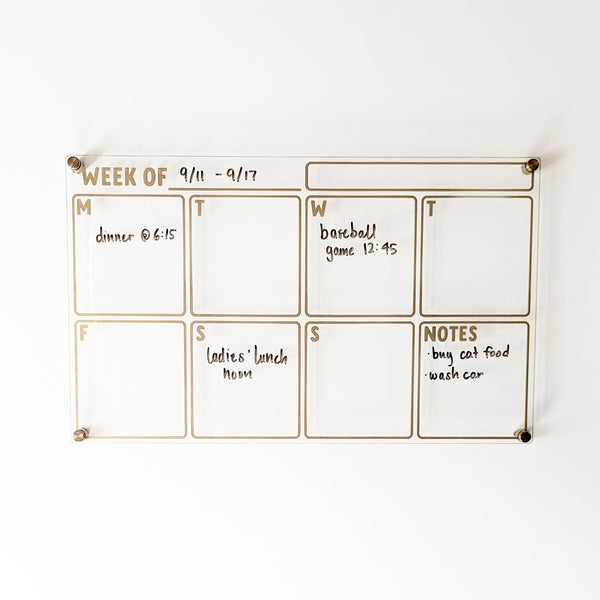 WEEK OF 9/11 - 9/17
M
dinner @ 6:15
T
W
baseball
game 12:45
T
F
S
ladies' lunch
noon
S
NOTES
· buy cat food
· wash car